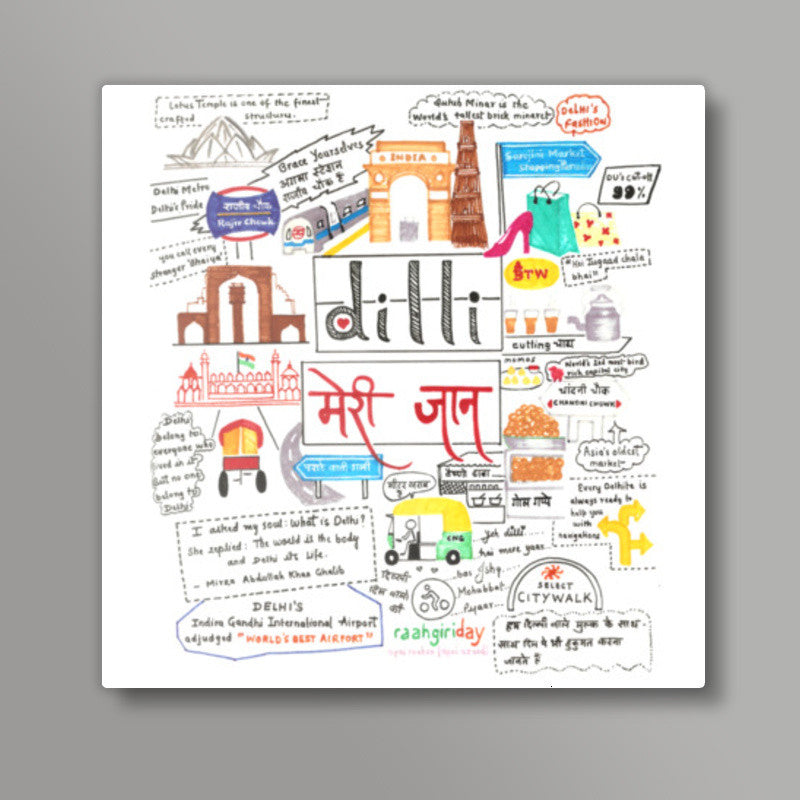 Lotus Temple is one of the finest
crafted structures.
Qutub Minar is the
World's tallest brick minaret
DELHI'S
FASHION
Brace Yourselves
अगला स्टेशन
राजीव चौक है
INDIA
Sarojini Market
Shopping Paradise
DU's Cutoff
99%
Delhi Metro
Delhi's Pride
राजीव चौक
Rajiv Chowk
you call every
stranger 'Bhaiya'
STW
"Koi Jugaad chala
bhai"
dilli
cutting चाय
momos
World's 2nd most bird
rich capital city
मेरी जान
चांदनी चौक
CHANDNI CHOWK
Delhi
belong to
everyone who
lived in it
But no one
belong to
Delhi
Asia's oldest
market
पराठे वाली गली
वैष्णो ढाबा
गोल गप्पे
मीटर खराब
CNG
Every Delhite is
always ready to
help you
with
navigations
I asked my soul: What is Delhi?
She replied: The world is the body
and Delhi its life.
- Mirza Abdullah Khan Ghalib
Yeh dilli
hai mere yaar...
bas Ishq...
Mohabbat
Pyaar...
दिल्ली
दिल वालों
की
SELECT
CITYWALK
DELHI'S
Indira Gandhi International Airport
adjudged "WORLD'S BEST AIRPORT"
raahgiriday
हम दिल्ली वाले मुल्क के साथ-
साथ दिल पे भी हुकूमत करना
जानते हैं